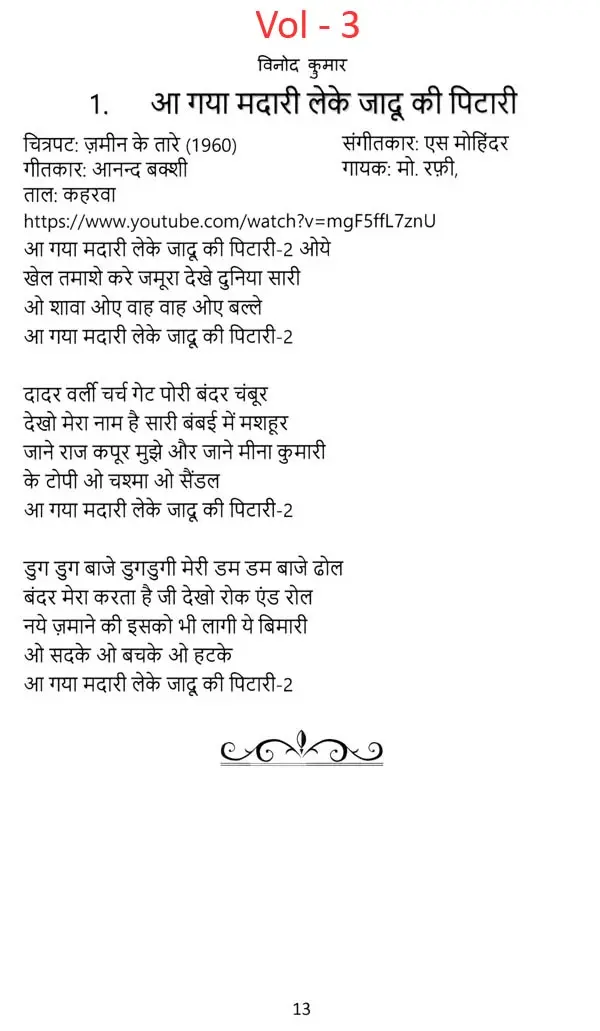 Vol - 3
विनोद कुमार
1. आ गया मदारी लेके जादू की पिटारी
चित्रपट: ज़मीन के तारे (1960) संगीतकार: एस मोहिंदर
गीतकार: आनन्द बक्शी गायक: मो. रफ़ी,
ताल: कहरवा
https://www.youtube.com/watch?v=mgF5ffL7znU
आ गया मदारी लेके जादू की पिटारी-2 ओये
खेल तमाशे करे जमूरा देखे दुनिया सारी
ओ शावा ओए वाह वाह ओए बल्ले
आ गया मदारी लेके जादू की पिटारी-2
दादर वर्ली चर्च गेट पोरी बंदर चंबूर
देखो मेरा नाम है सारी बंबई में मशहूर
जाने राज कपूर मुझे और जाने मीना कुमारी
के टोपी ओ चश्मा ओ सैंडल
आ गया मदारी लेके जादू की पिटारी-2
डुग डुग बाजे डुगडुगी मेरी डम डम बाजे ढोल
बंदर मेरा करता है जी देखो रोक एंड रोल
नये ज़माने की इसको भी लागी ये बिमारी
ओ सदके ओ बचके ओ हटके
आ गया मदारी लेके जादू की पिटारी-2
13